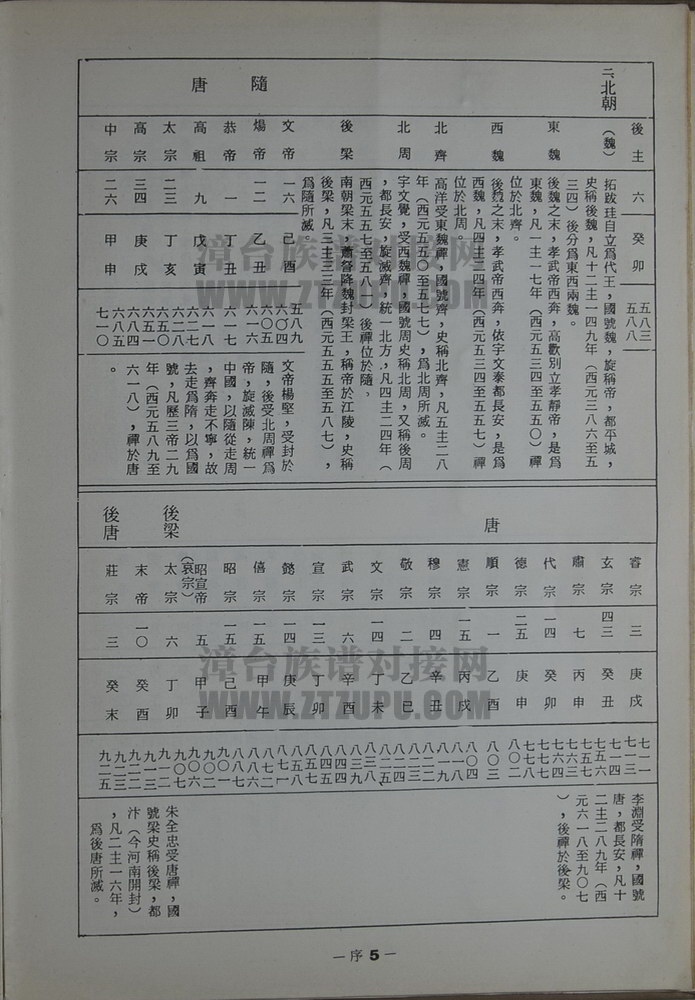 後主 六 癸卯 五八三 五八八
二、北朝
（魏）
拓跋珪自立爲代王，國號魏，旋稱帝，都平城，
史稱後魏，凡十二主一四九年（西元三八六至五
三四）後分爲東西兩魏。
東魏
後魏之末，孝武帝西奔，高歡別立孝靜帝，是爲
東魏，凡一主一七年（西元五三四至五五〇）禪
位於北齊。
西魏
後魏之末，孝武帝西奔，依宇文泰都長安，是爲
西魏，凡四主二四年（西元五三四至五五七）禪
位於北周。
北齊
高洋受東魏禪，國號齊，史稱北齊，凡五主二八
年（西元五五〇至五七七），爲北周所滅。
北周
宇文覺，受西魏禪，國號周史稱北周，又稱後周
，都長安，旋滅齊，統一北方，凡四主二四年（
西元五五七至五八一）後禪位於隨。
後梁
南朝梁末，蕭詧降魏封梁王，稱帝於江陵，史稱
後梁，凡三主三三年（西元五五五至五八七），
爲隨所滅
隨
文帝 一六 己酉 五八九 六〇四
煬帝 一二 乙丑 六〇五 六一六
恭帝 一 丁丑 六一七
文帝楊堅，受封於
隨，後受北周禪爲
帝，旋滅陳，統一
中國，以隨從走周
，齊奔走不寧，故
去走爲隋，以爲國
號，凡歷三帝二九
年（西元五八九至
六一八），禪於唐
。
唐
高祖 九 戊寅 六一八 六二七
太宗 二三 丁亥 六二八 六五〇
高宗 三四 庚戌 六五一 六八四
中宗 二六 甲申 六八五 七一〇
唐
睿宗 三 庚戌 七一一 七一三
玄宗 四三 癸丑 七一四 七五六
肅宗 七 丙申 七五七 七六三
代宗 一四 癸卯 七六四 七七七
德宗 二五 庚申 七七八 八〇二
順宗 一 乙酉 八〇三
憲宗 一五 丙戌 八〇四 八一八
穆宗 四 辛丑 八一九 八二二
敬宗 二 乙巳 八二三 八二四
文宗 一四 丁未 八二五 八三八
武宗 六 辛酉 八三九 八四四
宣宗 一三 丁卯 八四五 八五七
懿宗 一四 庚辰 八五八 八七一
僖宗 一五 甲午 八七二 八八六
昭宗 一五 己酉 八八七 九〇一
昭宣帝（哀宗） 五 甲子 九〇二 九〇六
李淵受隋禪，國號
唐，都長安，凡十
二主二八九年（西
元六一八至九〇七
），後禪於後梁。
後梁
太宗 六 丁卯 九〇七 九一二
末帝 一〇 癸酉 九一三 九二二
朱全忠受唐禪，國
號梁史稱後梁，都
汴（今河南開封）
，凡二主一六年，
爲後唐所滅。
後唐
莊宗 三 癸未 九二三 九二五
— 序 5 —
漳台族谱对接网
WWW.ZTZUPU.COM
漳台族谱对接网
WWW.ZTZUPU.COM